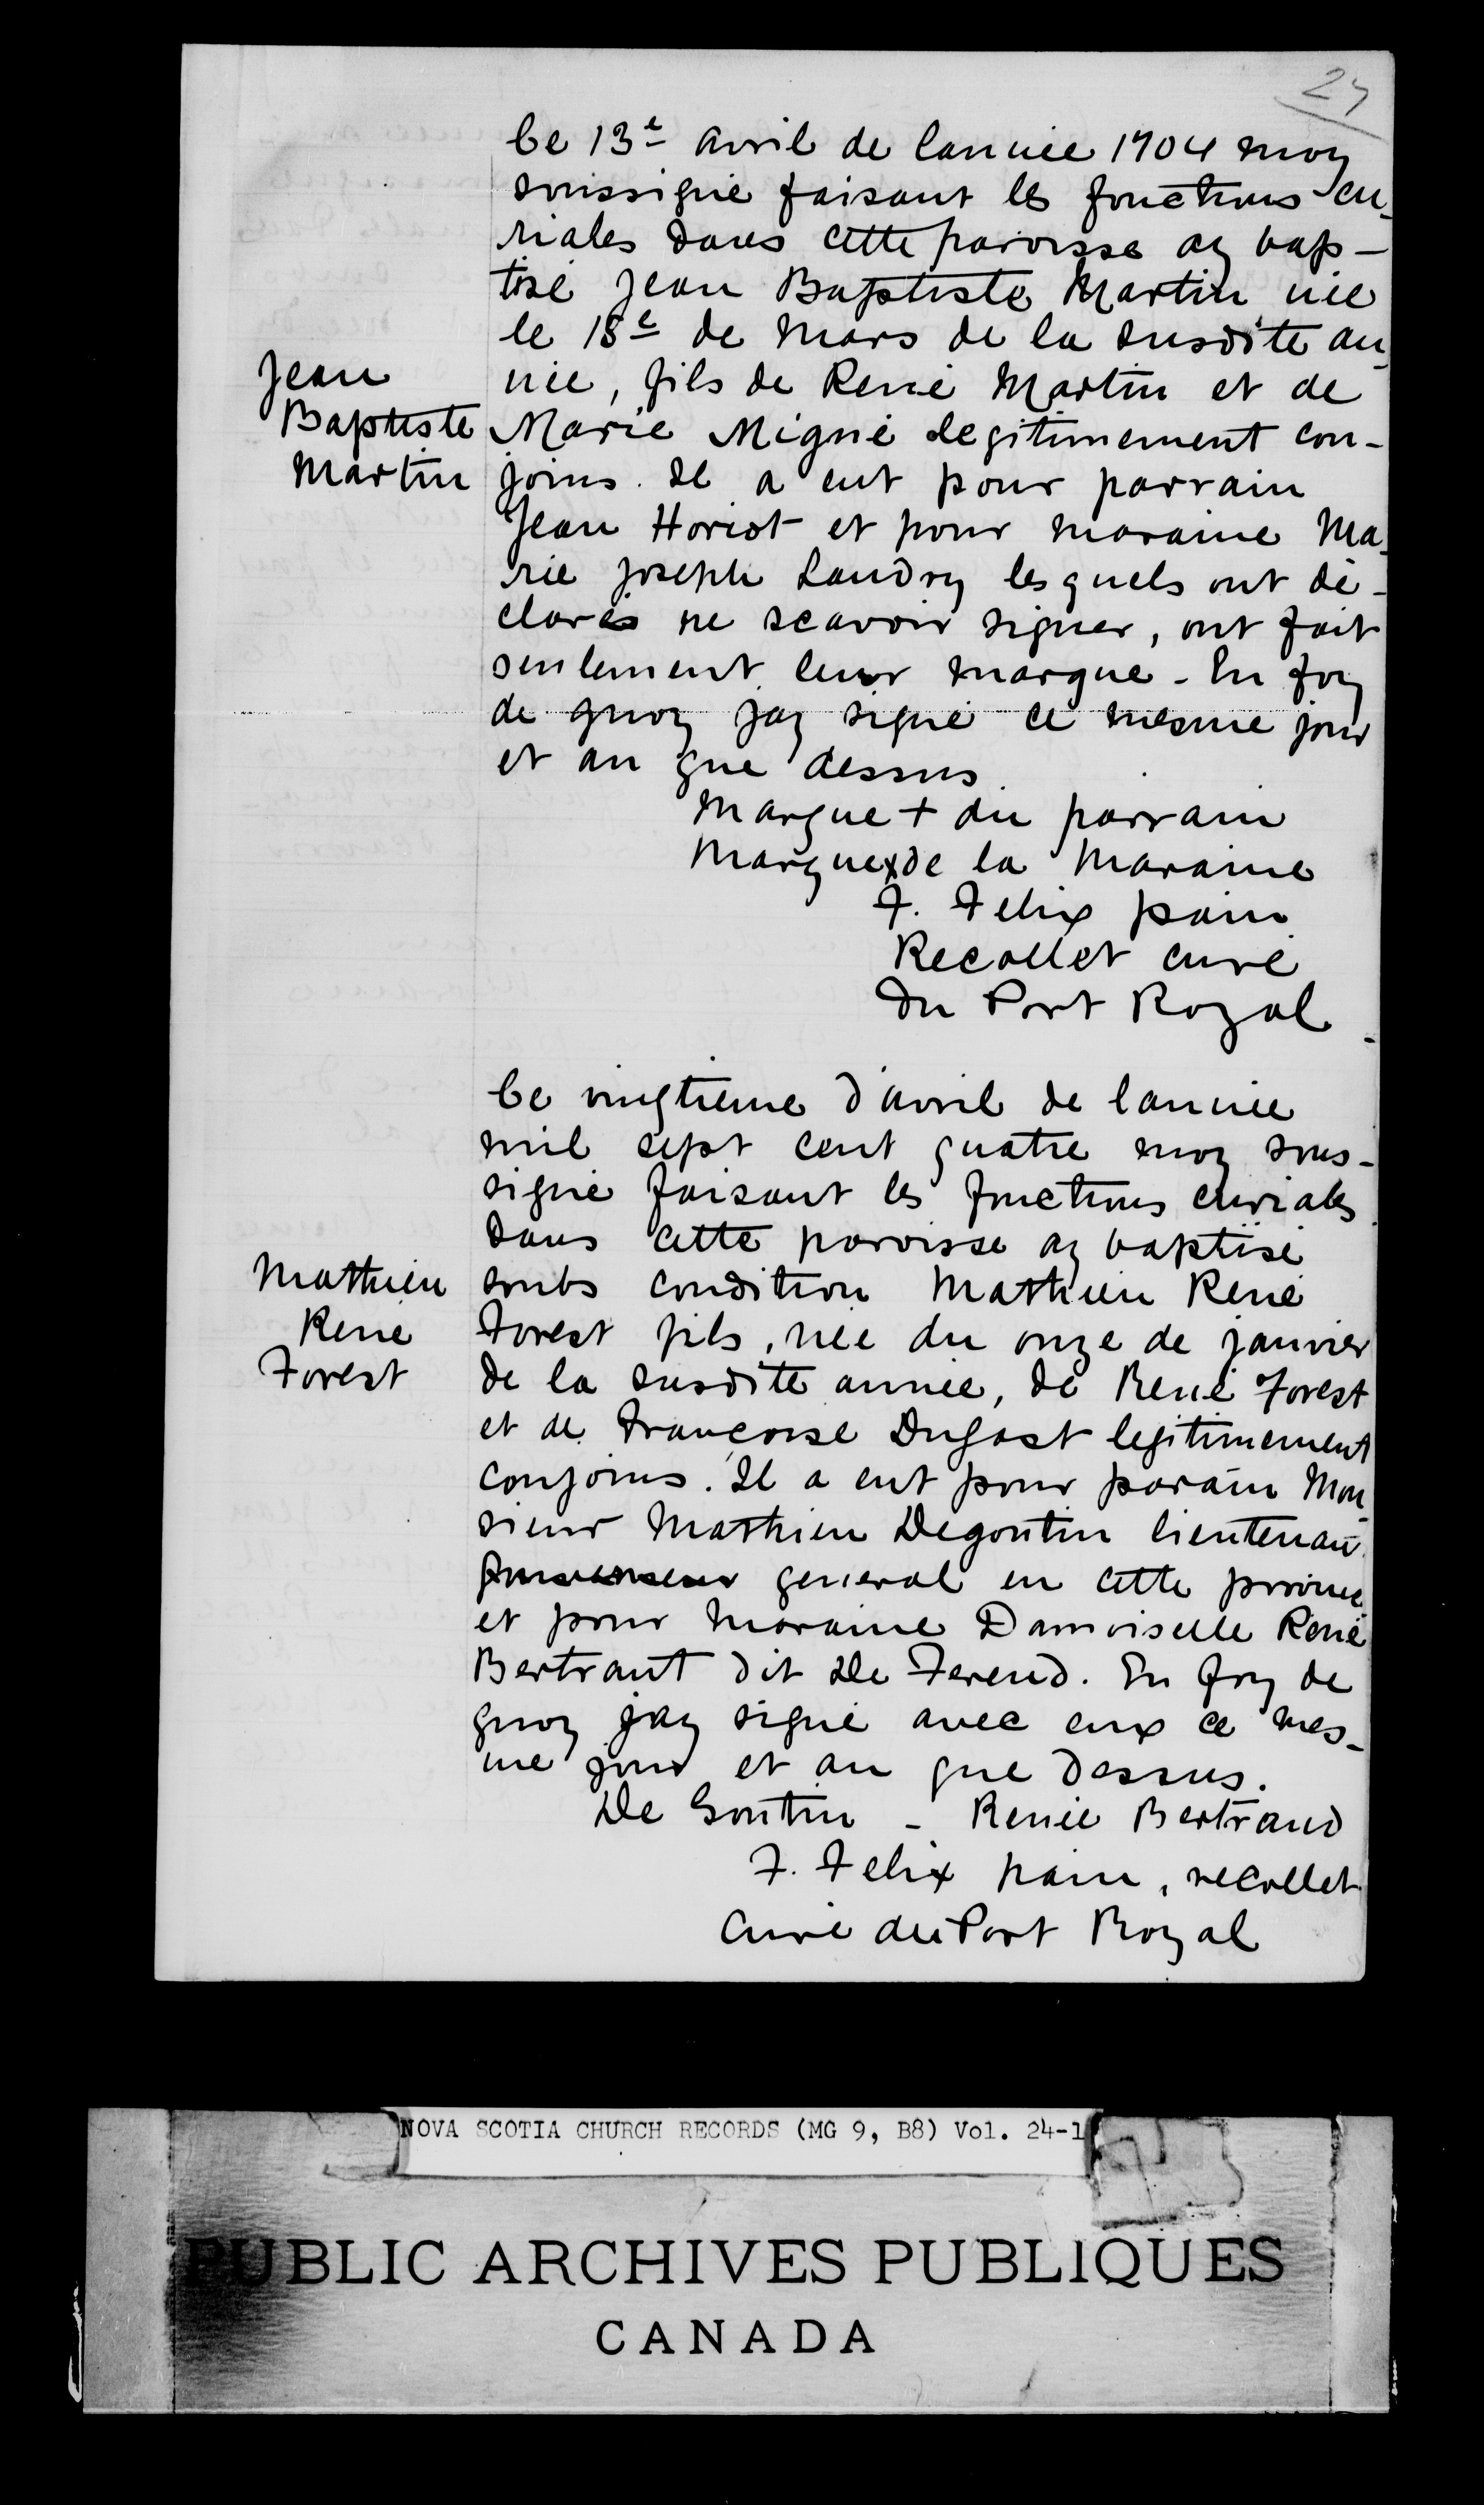 27
Ce 13e avril de lannée 1704 moy
soussigné faisant les fonctions cu-
riales dans cette paroisse ay bap-
tisé Jean Baptiste Martin née
le 18e de mars de la susdite an-
née, fils de René Martin et de
Jean
Baptiste
Martin
Marie Migné legitimement con-
joins. Il a eut pour parrain
Jean Horiot et pour maraine Ma-
rie Joseph Landry lesquels ont dé-
clarés ne scavoir signer, ont fait
seulement leur marque - En foy
de quoy jay signé ce mesme jour
et an que dessus
Marque + du parrain
Marque x de la Maraine
F. Felix pain
Recollet curé
du Port Royal
Ce vingtieme d'avril de lannée
mil sept cent quatre moy sous-
signé faisant les fonctions curiales
dans cette paroisse ay baptisé
Mathieu
René
Forest
soubs condition Mathieu René
Forest fils, née du onze de janvier
de la susdite année, de René Forest
et de Françoise Dugast legitimement
conjoins. Il a eut pour parain Mon-
sieur Mathieu Degoutin lieutenant
general en cette province
et pour maraine Damoiselle René
Bertrant dit De Ferend. En foy de
quoy jay signé avec eux ce mes-
me jour et an que dessus.
De Goutin - Renée Bertrand
F. Felix pain, recollet
Curé du Port Royal
NOVA SCOTIA CHURCH RECORDS (MG 9, B8) Vol. 24-1
PUBLIC ARCHIVES PUBLIQUES
CANADA